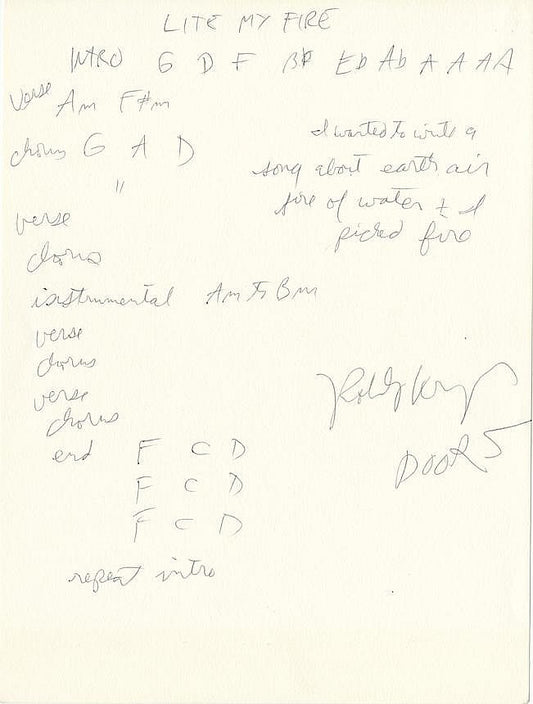 LITE MY FIRE
INTRO G D F Bb Eb Ab A A A A
verse Am F#m
chorus G A D
"
I wanted to write a
song about earth air
fire or water + I
picked fire
verse
chorus
instrumental Am to Bm
verse
chorus
verse
chorus
end F C D
F C D
F C D
repeat intro
Robby Krieger
DOORS